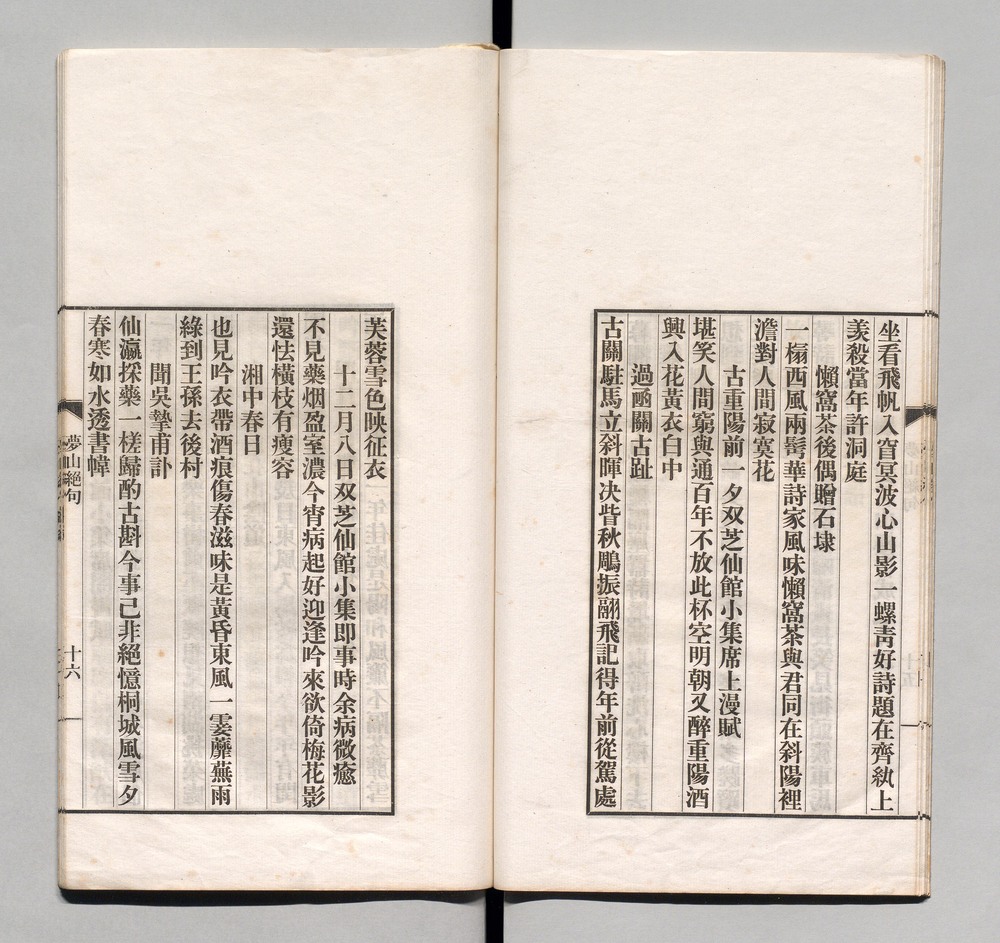 坐看飛帆入窅冥波心山影一螺靑好詩題在齊紈上
羨殺當年許洞庭
懶窩茶後偶贈石埭
一榻西風兩鬢華詩家風味懶窩茶與君同在斜陽裡
澹對人間寂寞花
古重陽前一夕双芝仙館小集席上漫賦
堪笑人間窮與通百年不放此杯空明朝又醉重陽酒
興入花黃衣白中
過凾關古趾
古關駐馬立斜暉决眥秋鵰振翮飛記得年前從駕處
芙蓉雪色映征衣
十二月八日双芝仙館小集即事時余病微癒
不見藥烟盈室濃今宵病起好迎逢吟來欲倚梅花影
還怯橫枝有瘦容
湘中春日
也見吟衣帶酒痕傷春滋味是黃昏東風一霎蘼蕪雨
綠到王孫去後村
聞吳摯甫訃
仙瀛採藥一槎歸酌古斟今事已非絕憶桐城風雪夕
春寒如水透書幃
夢山絕句
十六